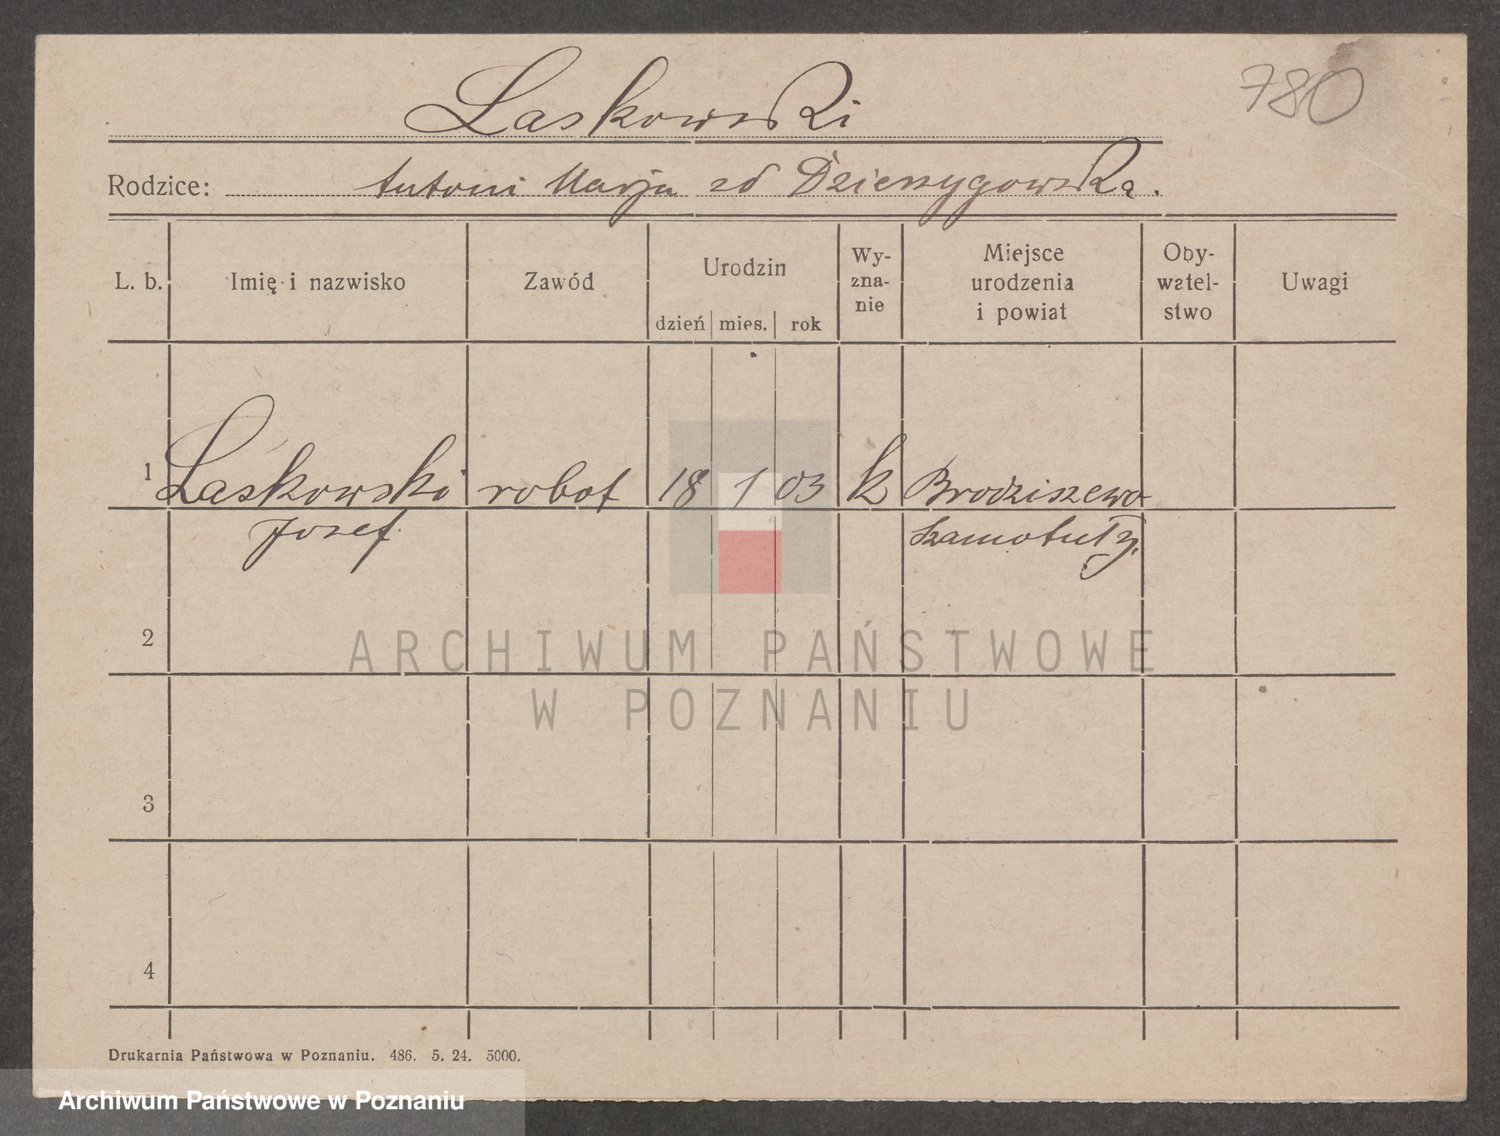 780
Laskowski
Rodzice: Antoni Marja zd
L. b. Imię i nazwisko Zawód Urodzin dzień mies. rok Wy-zna-nie Miejsce urodzenia i powiat Oby-watel-stwo Uwagi
1 Laskowski robot 18 1 03 k Brodziszewo
Jozef Szamotuły
2
ARCHIWUM PAŃSTWOWE
W POZNANIU
3
4
Drukarnia Państwowa w Poznaniu. 486. 5. 24. 5000.
Archiwum Państwowe w Poznaniu